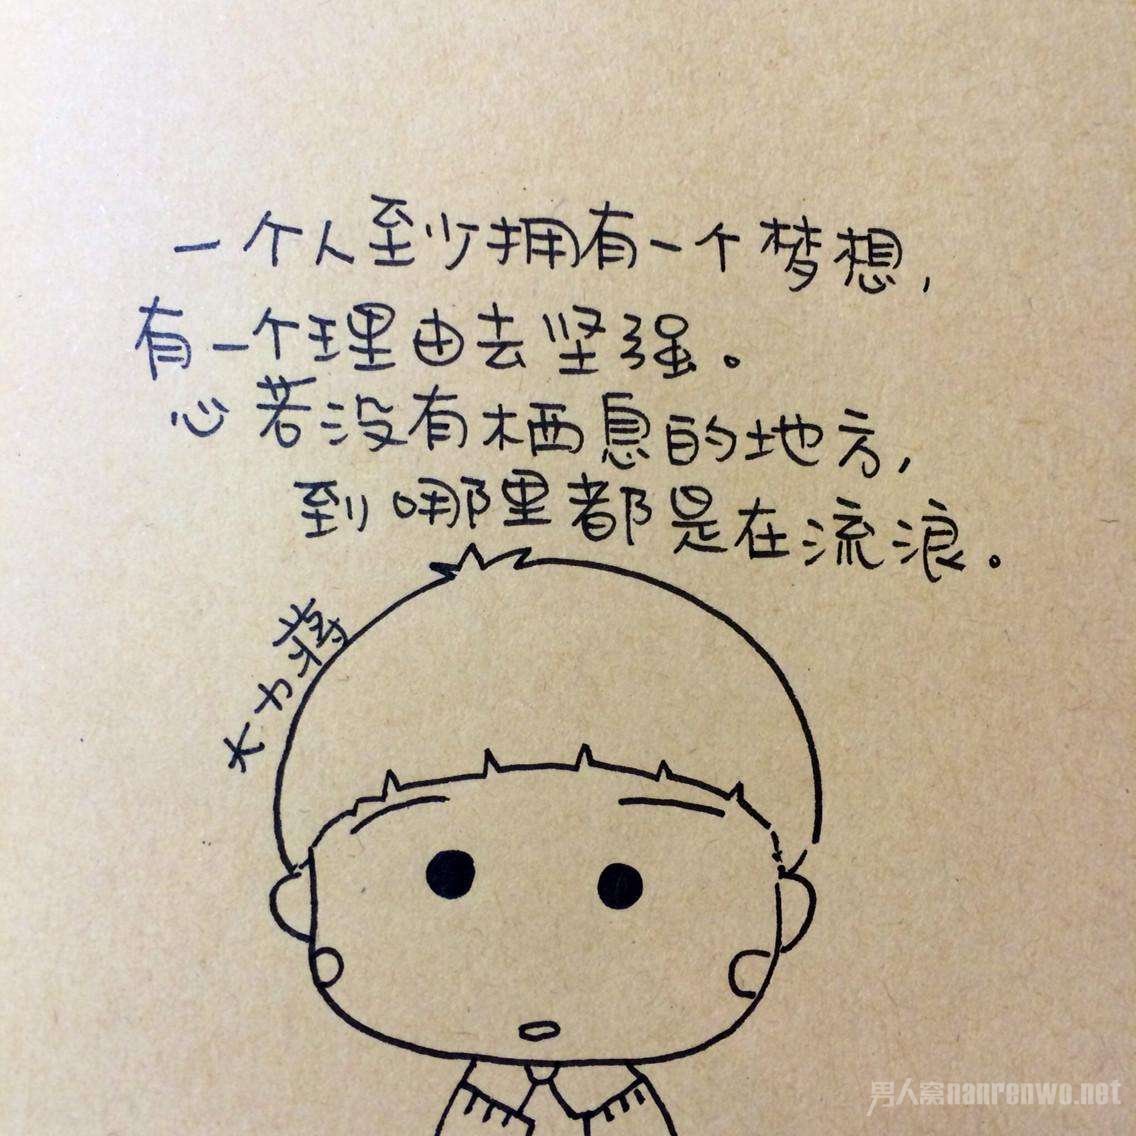 一个人至少拥有一个梦想,
有一个理由去坚强。
心若没有栖息的地方,
到哪里都是在流浪。
大力蒋
男人窝nanrenwo.net